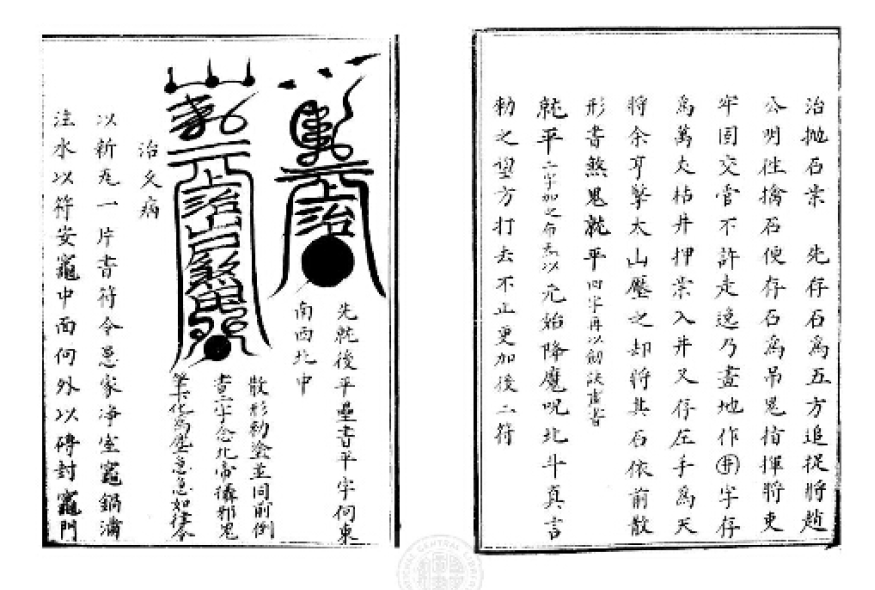 治抛石祟　先存石為五方追捉將趙
公明往擒石便存石為吊鬼指揮將吏
牢固交管不許走逸乃畫地作㘝字存
為萬丈枯井押祟入井又存左手為天
將余亨擎太山壓之却將其石依前散
形書煞鬼就平四字再以劍訣虛書
就平二字加之布炁以元始降魔咒北斗真言
勅之望方打去不止更加後二符
先就後平疊書平字向東
南西北中
上治
散形勅塗並同前倒
書二字念北帝攝邪鬼
筆化為塵急急如律令
上治
治火病
以新瓦一片書符令患家淨室竈鍋滿
注水以符安竈中面向外以磚封竈門